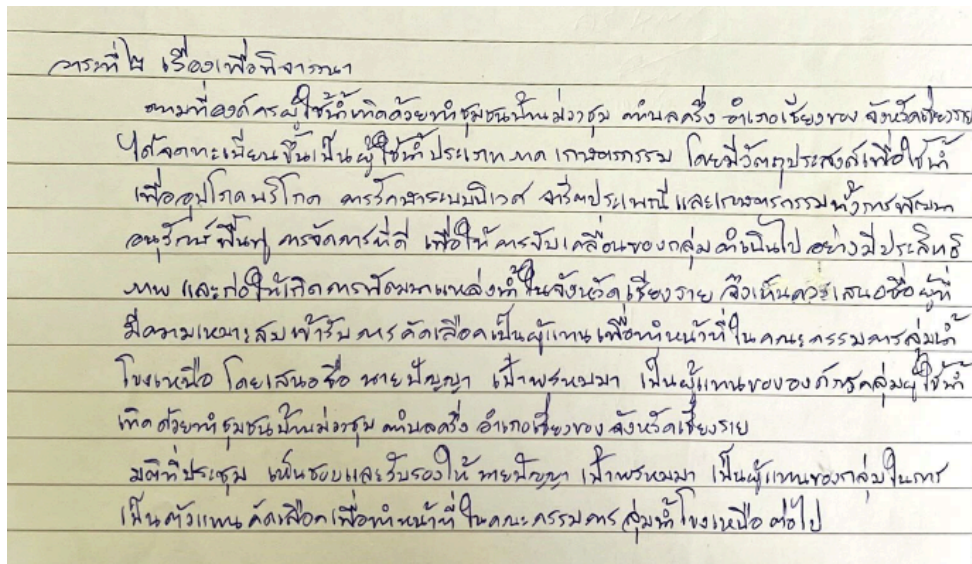 วาระที่ ๒ เรื่องเพื่อพิจารณา
ตามที่องค์กรผู้ใช้น้ำเทิดด้วยทำชุมชนบ้านม่วงชุม ตำบลครึ่ง อำเภอเชียงของ จังหวัดเชียงราย
ได้จดทะเบียนขึ้นเป็นผู้ใช้น้ำ ประเภท ภาค เกษตรกรรม โดยมีวัตถุประสงค์เพื่อใช้น้ำ
เพื่ออุปโภคบริโภค การรักษาระบบนิเวศ จารีตประเพณี และเกษตรกรรม ทั้งการพัฒนา
อนุรักษ์ฟื้นฟู การจัดการที่ดี เพื่อให้การขับเคลื่อนของกลุ่มดำเนินไปอย่างมีประสิทธิ
ภาพ และก่อให้เกิดการพัฒนาแหล่งน้ำในจังหวัดเชียงราย จึงเห็นควรเสนอชื่อผู้ที่
มีความเหมาะสมเข้ารับการคัดเลือกเป็นผู้แทนเพื่อทำหน้าที่ในคณะกรรมการลุ่มน้ำ
โขงเหนือ โดยเสนอชื่อ นายปัญญา เป้าพรหมมา เป็นผู้แทนขององค์กรกลุ่มผู้ใช้น้ำ
เทิดด้วยทำชุมชนบ้านม่วงชุม ตำบลครึ่ง อำเภอเชียงของ จังหวัดเชียงราย
มติที่ประชุม เห็นชอบและรับรองให้ นายปัญญา เป้าพรหมมา เป็นผู้แทนของกลุ่มในการ
เป็นตัวแทนคัดเลือกเพื่อทำหน้าที่ในคณะกรรมการลุ่มน้ำโขงเหนือ ต่อไป